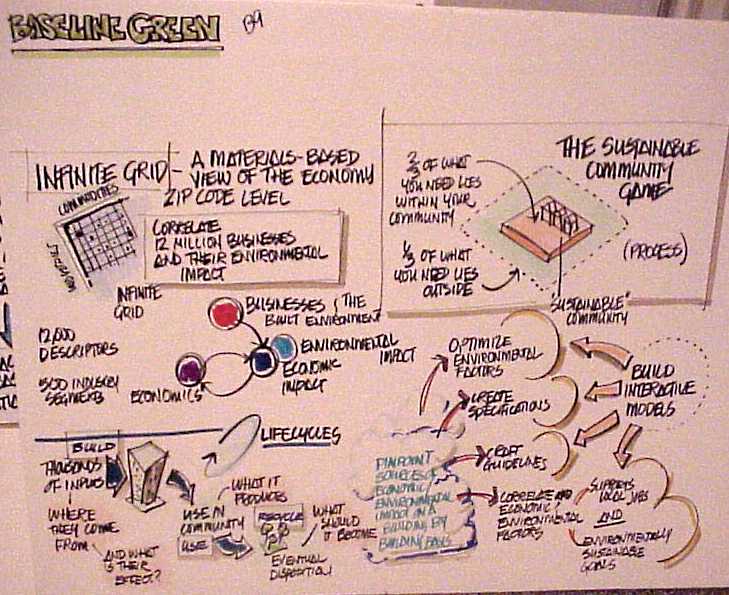 BASELINE GREEN
B9
INFINITE GRID - A MATERIALS-BASED
VIEW OF THE ECONOMY
ZIP CODE LEVEL
COMMODITIES
CORRELATE
12 MILLION BUSINESSES
AND THEIR ENVIRONMENTAL
IMPACT
INFINITE
GRID
12,000
DESCRIPTORS
500 INDUSTRY
SEGMENTS
BUSINESSES / THE
BUILT ENVIRONMENT
ENVIRONMENTAL IMPACT
ECONOMIC
IMPACT
ECONOMICS
THE SUSTAINABLE
COMMUNITY
GAME
(PROCESS)
2/3 OF WHAT
YOU NEED LIES
WITHIN YOUR
COMMUNITY
1/3 OF WHAT
YOU NEED LIES
OUTSIDE
"SUSTAINABLE"
COMMUNITY
LIFECYCLES
BUILD
THOUSANDS
OF INPUTS
WHERE
THEY COME
FROM
AND WHAT
IS THEIR
EFFECT?
USE IN
COMMUNITY
USE
WHAT IT
PRODUCES
RECYCLE
WHAT
SHOULD
IT BECOME
EVENTUAL
DISPOSITION
PINPOINT
SOURCES OF
ECONOMIC/
ENVIRONMENTAL
IMPACT ON A
BUILDING BY
BUILDING BASIS
OPTIMIZE
ENVIRONMENTAL
FACTORS
CREATE
SPECIFICATIONS
CRAFT
GUIDELINES
CORRELATE AND
ECONOMIC /
ENVIRONMENTAL
FACTORS
BUILD
INTERACTIVE
MODELS
SUPPORTS
LOCAL JOBS
AND
ENVIRONMENTALLY
SUSTAINABLE
GOALS